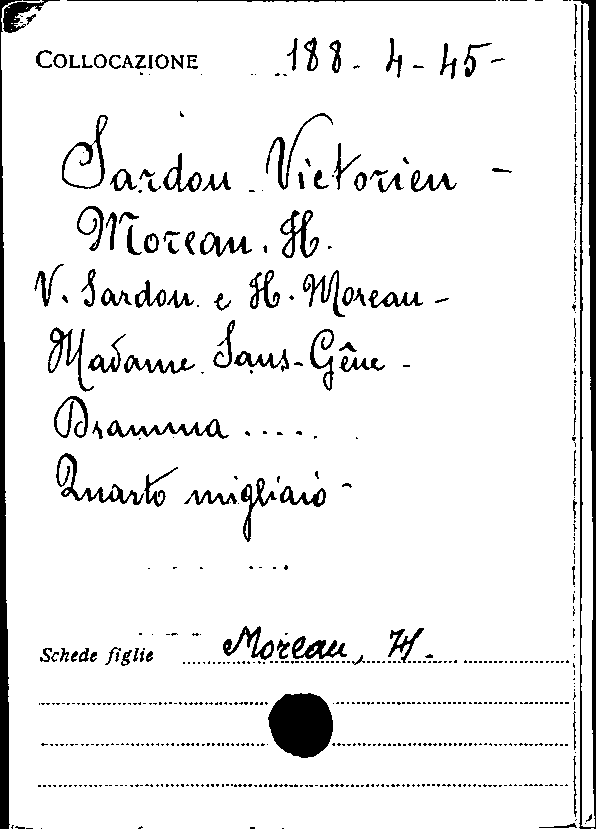 COLLOCAZIONE 188-4-45-
Sardou Victorien -
Moreau. H.
V. Sardou e H. Moreau -
Madame Sans-Gêne -
Dramma .....
Quarto migliaio -
Schede figlie Moreau, H.